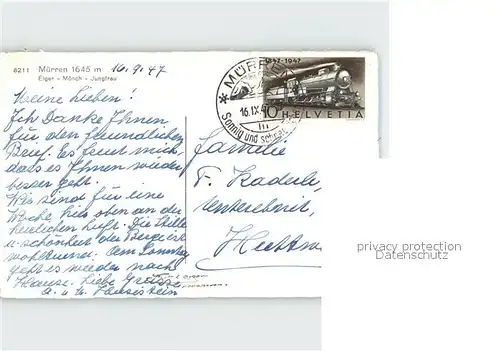 8211 Mürren 1645 m 16.9.47
Eiger - Mönch - Jungfrau
Meine Lieben!
Ich Danke Ihnen
für den freundlichen
Brief. Es freut mich,
dass es Ihnen wieder
besser geht.
Wir sind für eine
Woche hier oben an der
herrlichen Luft. Die Stille
u. schönheit der Berge ist
wohltuend. Am Sonntag
geht es wieder nach
Hause. Liebe Grüsse
A. u. H.
1847-1947
MÜRREN
16.IX.47
Sonnig und schnee
10 HELVETIA
Familie
F. Kaderli,
privacy protection
Datenschutz